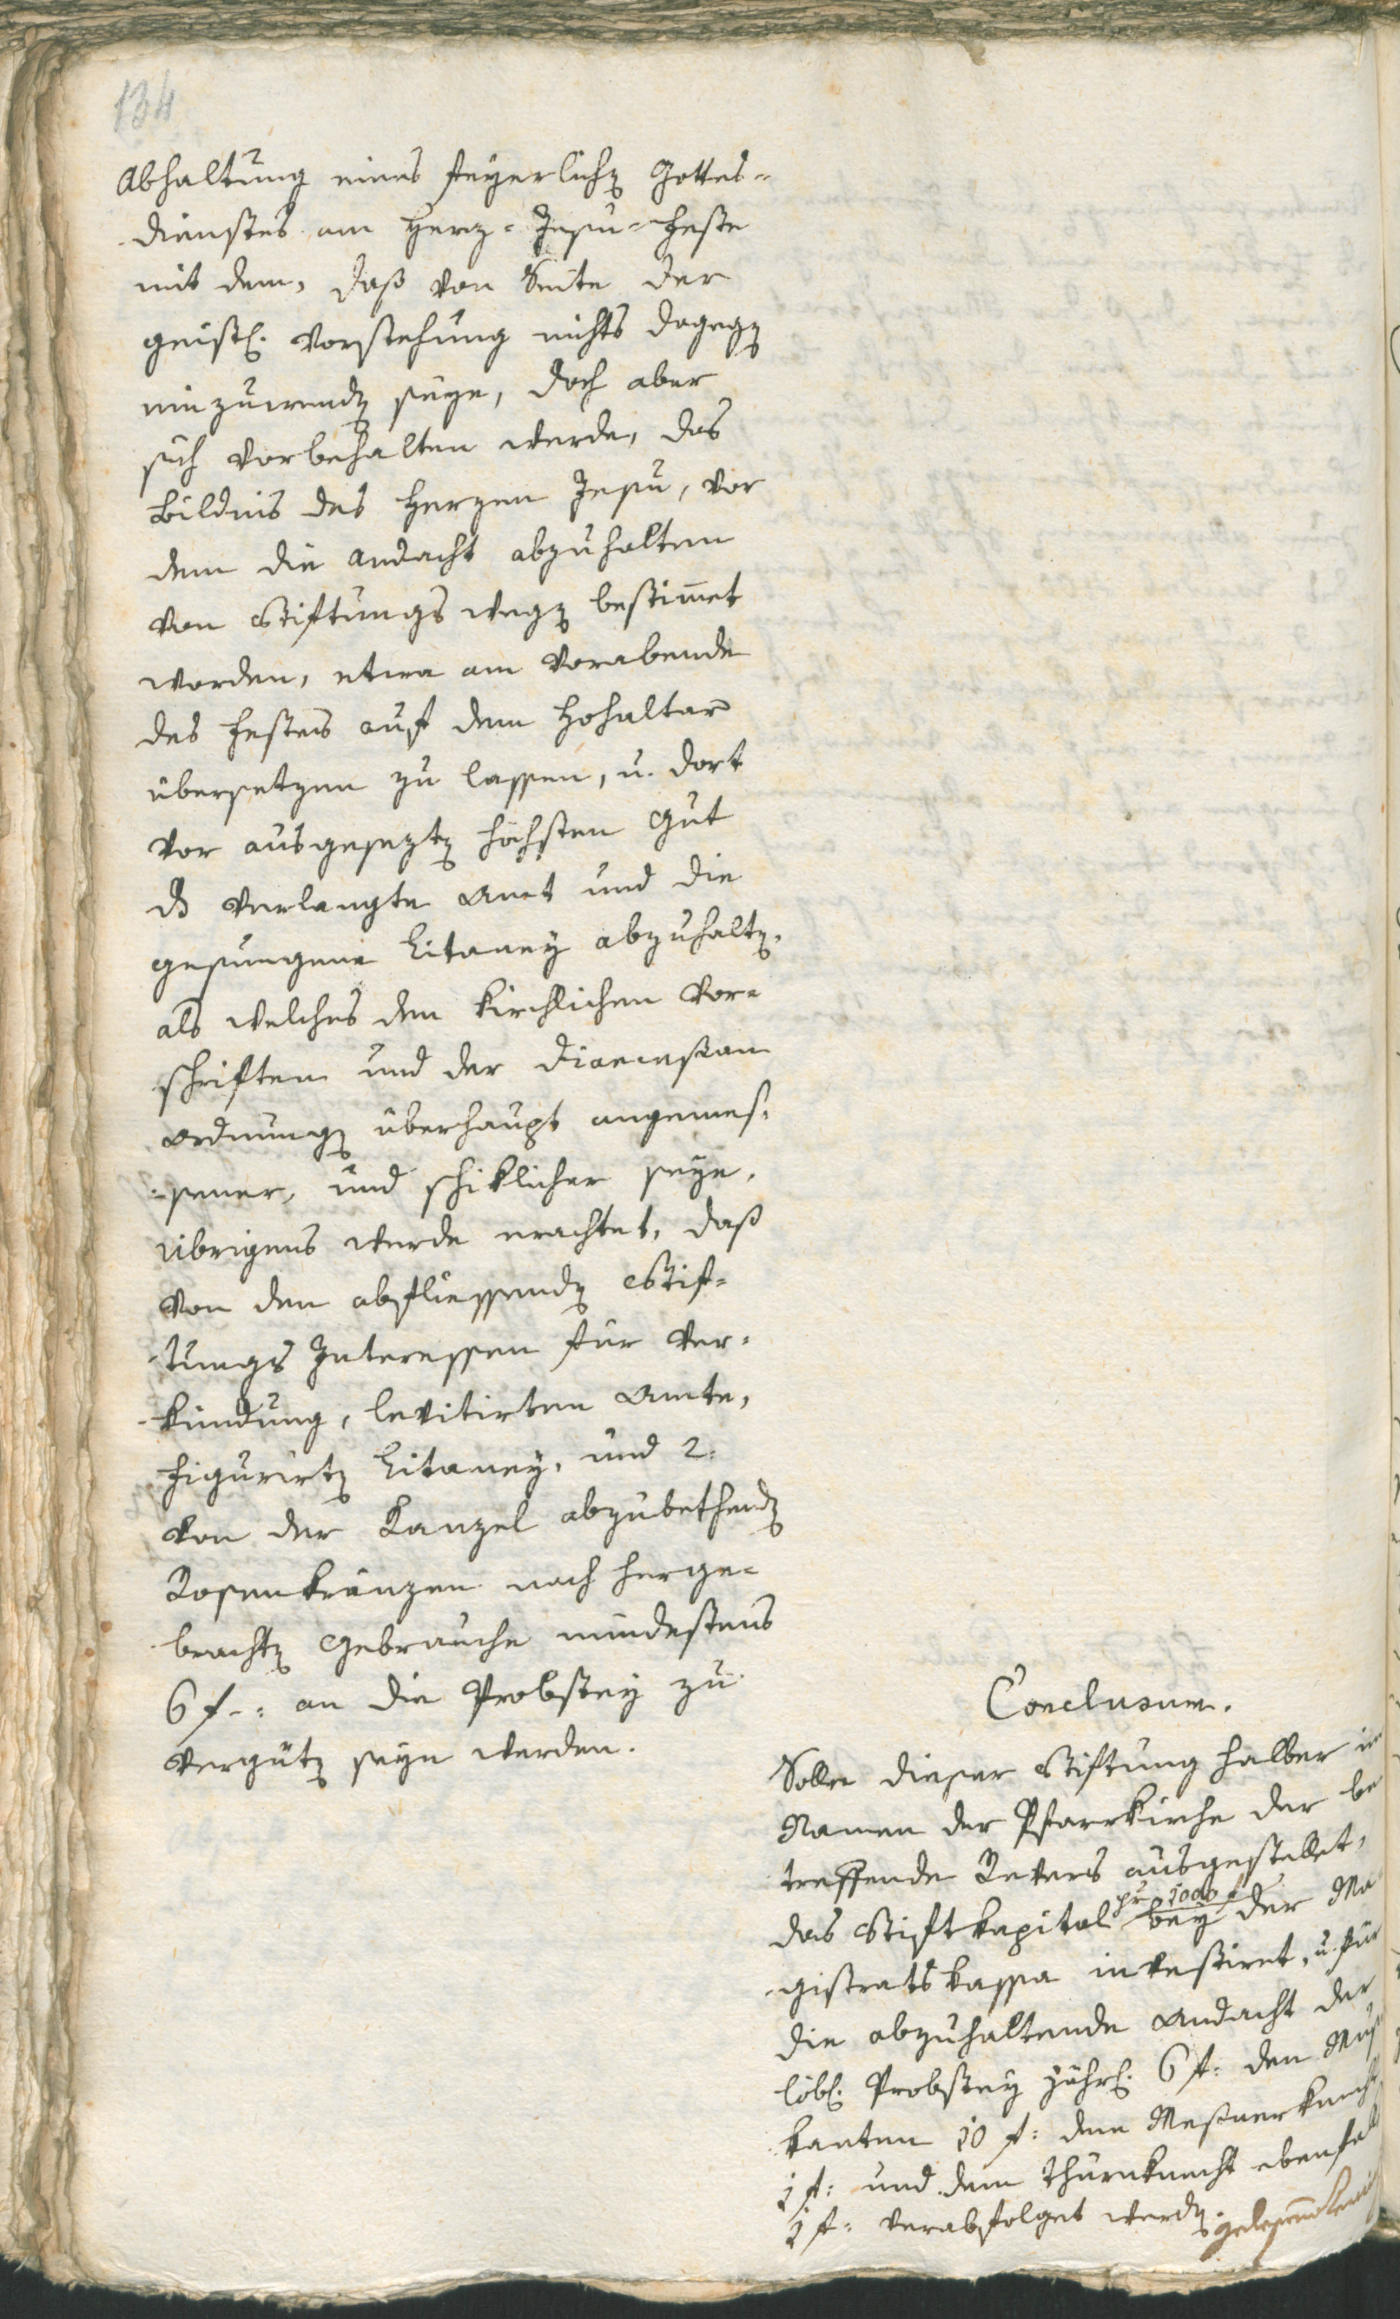 134
Abhaltung eines feÿerlichen Gottes-
dienstes am Herz-Jesu-Feste
mit dem, daß von Seite der
geistl. Vorstehung nichts dagegen
einzuwenden seÿe, doch aber
sich vorbehalten werde, das
Bildnis des Herzen Jesu, vor
dem die Andacht abzuhalten
von Stiftungs wegen bestim̄et
worden, etwa am Vorabende
des Festes auf dem Hohaltar
übersetzen zu lassen, u. dort
vor ausgesezten höchsten Gut
ds verlangte Amt und die
gesungene Litaneÿ abzuhalten,
als welches den kirchlichen Vor-
schriften und der Dioecesan
Ordnung überhaupt angemes-
-sener, und schiklicher seÿe.
Übrigens werde erachtet, daß
von den abfliessenden Stif-
-tungs Interessen für Ver-
-kündung, levitirten Amte,
figurirten Litaneÿ, und 2.
von der Kanzel abzubethenden
Rosenkränzen nach herge-
brachten Gebrauche mindestens
6 f-: an die Probsteÿ zu
vergüten seÿn werden.
Conclusum.
Solle dieser Stiftung halber im
Namen der Pfarrkirche der be
treffende Revers ausgestellet,
das Stiftkapital pr 1000 f beÿ der Ma
-gistratskassa investiret, u. für
die abzuhaltende Andacht der
löbl. Probsteÿ jährl. 6 f: den Musi
kanten 10 f: dem Meßnerknecht
1 f: und dem Thurnknecht ebenfalls
1 f: verabfolget werden.